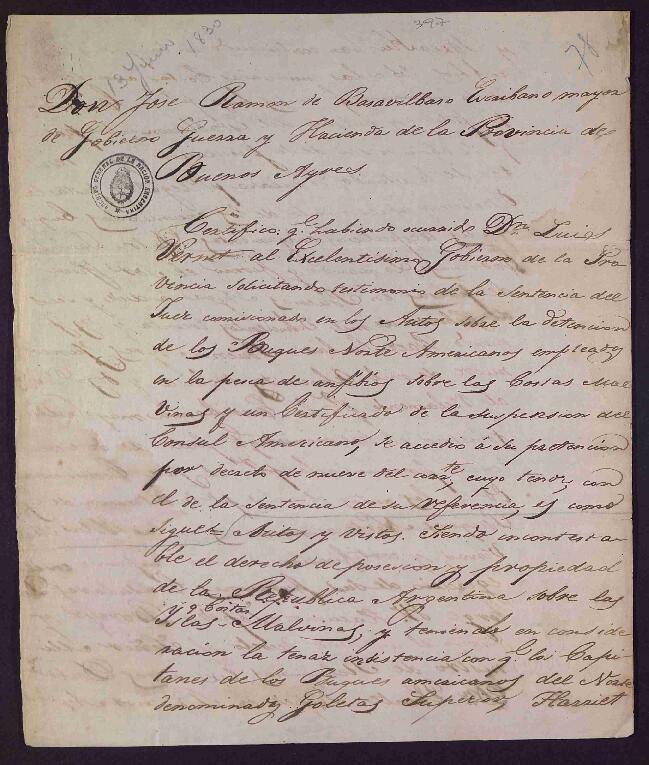 397
78
13 Junio 1830
Don José Ramon de Basavilbaso Escribano mayor
de Gobierno Guerra y Hacienda de la Provincia de
Buenos Ayres
ARCHIVO GENERAL DE LA NACION ARGENTINA
Certifico: q.e habiendo ocurrido Dn. Luis
Vernet al Excelentisimo Gobierno de la Pro
vincia solicitando testimonio de la Sentencia del
Juez comisionado en los Autos sobre la detencion
de los Buques Norte Americanos empleados
en la pesca de anfibios sobre las Costas Mal
vinas y un Certificado de la suspension del
Consul Americano, se accedio á su pretencion
por decreto de nueve del corr.te cuyo tenor, con
el de la sentencia de su referencia es como
sigue = Autos y vistos. Siendo incontesta
ble el derecho de posecion y propiedad
de la Republica Argentina sobre las
Yslas y Costas Malvinas, y teniendo en conside
racion la tenaz insistencia con q.e los Capi
tanes de los Buques americanos del Norte
denominados Goletas Superior Harriet